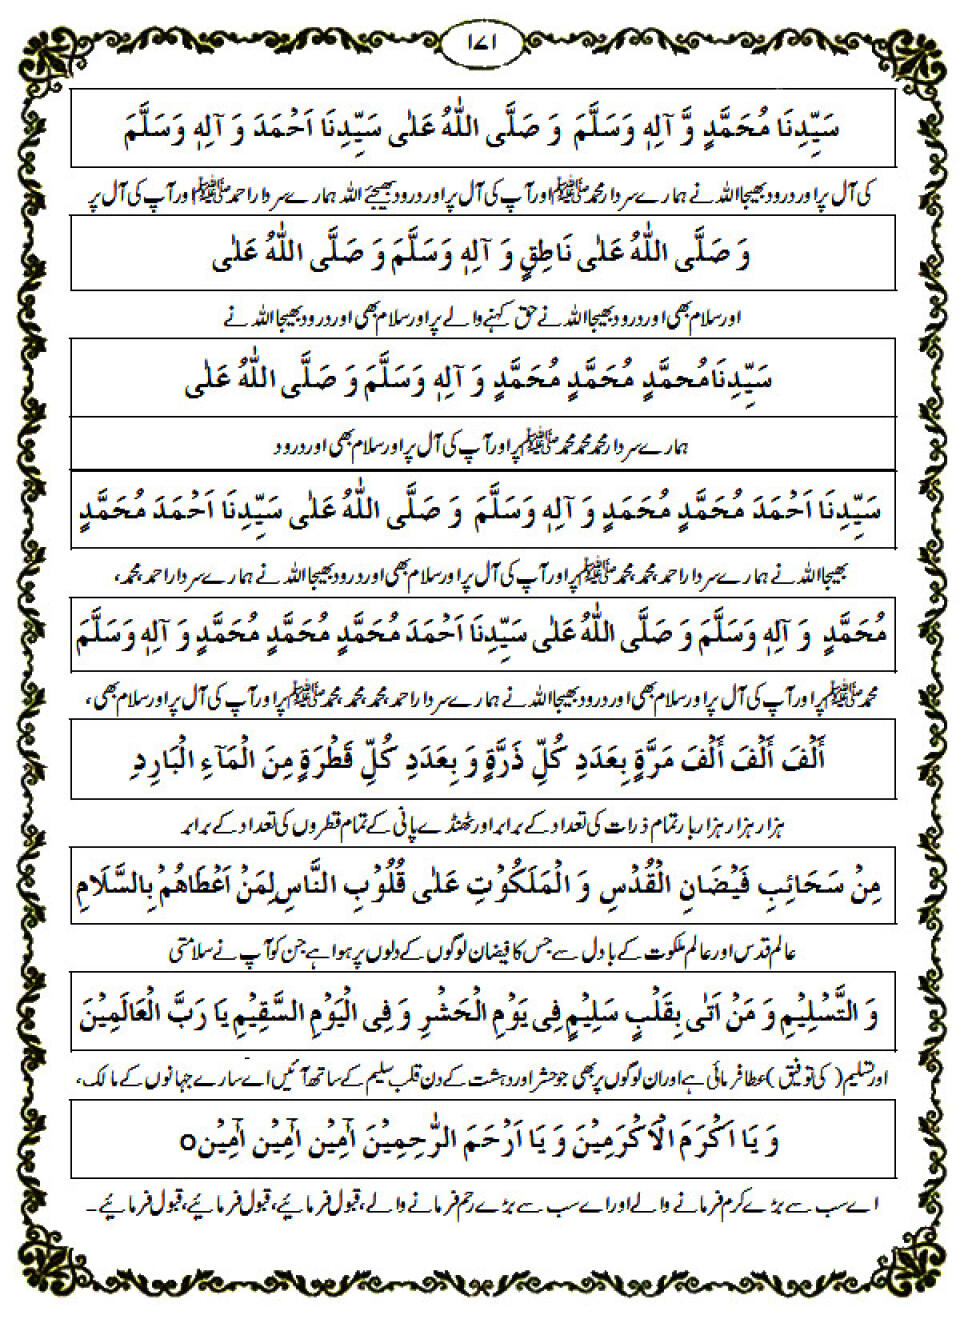 ۱۷۱
سَيِّدِنَا مُحَمَّدٍ وَّ آلِهٖ وَسَلَّمَ وَ صَلَّى اللّٰهُ عَلٰى سَيِّدِنَا اَحْمَدَ وَ آلِهٖ وَسَلَّمَ
کی آل پر اور درود بھیجا اللہ نے ہمارے سردار محمد ﷺ اور آپ کی آل پر اور درود بھیجئے اللہ ہمارے سردار احمد ﷺ اور آپ کی آل پر
وَ صَلَّى اللّٰهُ عَلٰى نَاطِقٍ وَ آلِهٖ وَسَلَّمَ وَ صَلَّى اللّٰهُ عَلٰى
اور سلام بھی اور درود بھیجا اللہ نے حق کہنے والے پر اور سلام بھی اور درود بھیجا اللہ نے
سَيِّدِنَا مُحمَّدٍ مُحَمَّدٍ مُحَمَّدٍ وَ آلِهٖ وَسَلَّمَ وَ صَلَّى اللّٰهُ عَلٰى
ہمارے سردار محمد محمد محمد ﷺ پر اور آپ کی آل پر اور سلام بھی اور درود
سَيِّدِنَا اَحْمَدَ مُحَمَّدٍ مُحَمَّدٍ وَ آلِهٖ وَسَلَّمَ وَ صَلَّى اللّٰهُ عَلٰى سَيِّدِنَا اَحْمَدَ مُحَمَّدٍ
بھیجا اللہ نے ہمارے سردار احمد، محمد، محمد ﷺ پر اور آپ کی آل پر اور سلام بھی اور درود بھیجا اللہ نے ہمارے سردار احمد، محمد،
مُحَمَّدٍ وَ آلِهٖ وَسَلَّمَ وَ صَلَّى اللّٰهُ عَلٰى سَيِّدِنَا اَحْمَدَ مُحَمَّدٍ مُحَمَّدٍ مُحَمَّدٍ وَ آلِهٖ وَسَلَّمَ
محمد ﷺ پر اور آپ کی آل پر اور سلام بھی اور درود بھیجا اللہ نے ہمارے سردار احمد، محمد، محمد، محمد ﷺ پر اور آپ کی آل پر اور سلام بھی،
أَلْفَ أَلْفَ أَلْفَ مَرَّةٍ بِعَدَدِ كُلِّ ذَرَّةٍ وَ بِعَدَدِ كُلِّ قَطْرَةٍ مِنَ الْمَآءِ الْبَارِدِ
ہزار ہزار ہزار بار تمام ذرات کی تعداد کے برابر اور ٹھنڈے پانی کے تمام قطروں کی تعداد کے برابر
مِنْ سَحَائِبِ فَيْضَانِ الْقُدْسِ وَ الْمَلَكُوْتِ عَلٰى قُلُوْبِ النَّاسِ لِمَنْ اَعْطَاهُمْ بِالسَّلَامِ
عالم قدس اور عالم ملکوت کے بادل سے جس کا فیضان لوگوں کے دلوں پر ہوا ہے جن کو آپ نے سلامتی
وَ التَّسْلِيْمِ وَ مَنْ اَتٰى بِقَلْبٍ سَلِيْمٍ فِى يَوْمِ الْحَشْرِ وَ فِى الْيَوْمِ السَّقِيْمِ يَا رَبَّ الْعَالَمِيْنَ
اور تسلیم (کی توفیق) عطا فرمائی ہے اور ان لوگوں پر بھی جو حشر اور دہشت کے دن قلب سلیم کے ساتھ آئیں اے سارے جہانوں کے مالک،
وَ يَا اَكْرَمَ الْاَكْرَمِيْنَ وَ يَا اَرْحَمَ الرّٰحِمِيْنَ اٰمِيْن اٰمِيْن اٰمِيْن٥
اے سب سے بڑے کرم فرمانے والے اور اے سب سے بڑے رحم فرمانے والے، قبول فرمائیے، قبول فرمائیے، قبول فرمائیے۔